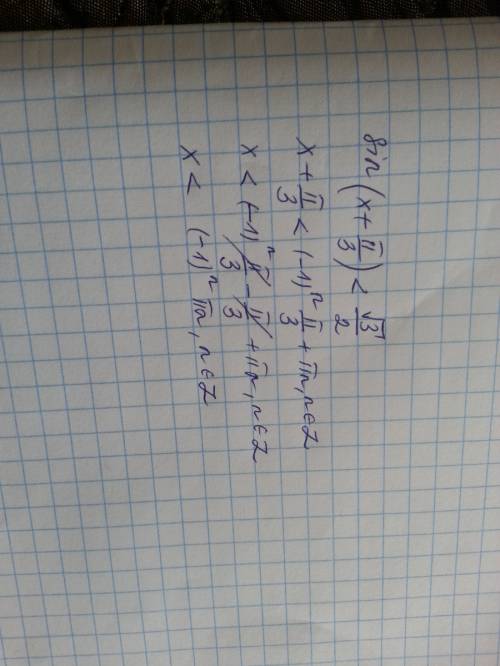 sin(x + π/3) < √3/2
x + π/3 < (-1)ⁿ π/3 + πn, n∈Z
x < (-1)ⁿ π/3 - π/3 + πn, n∈Z
x < (-1)ⁿ πn, n∈Z